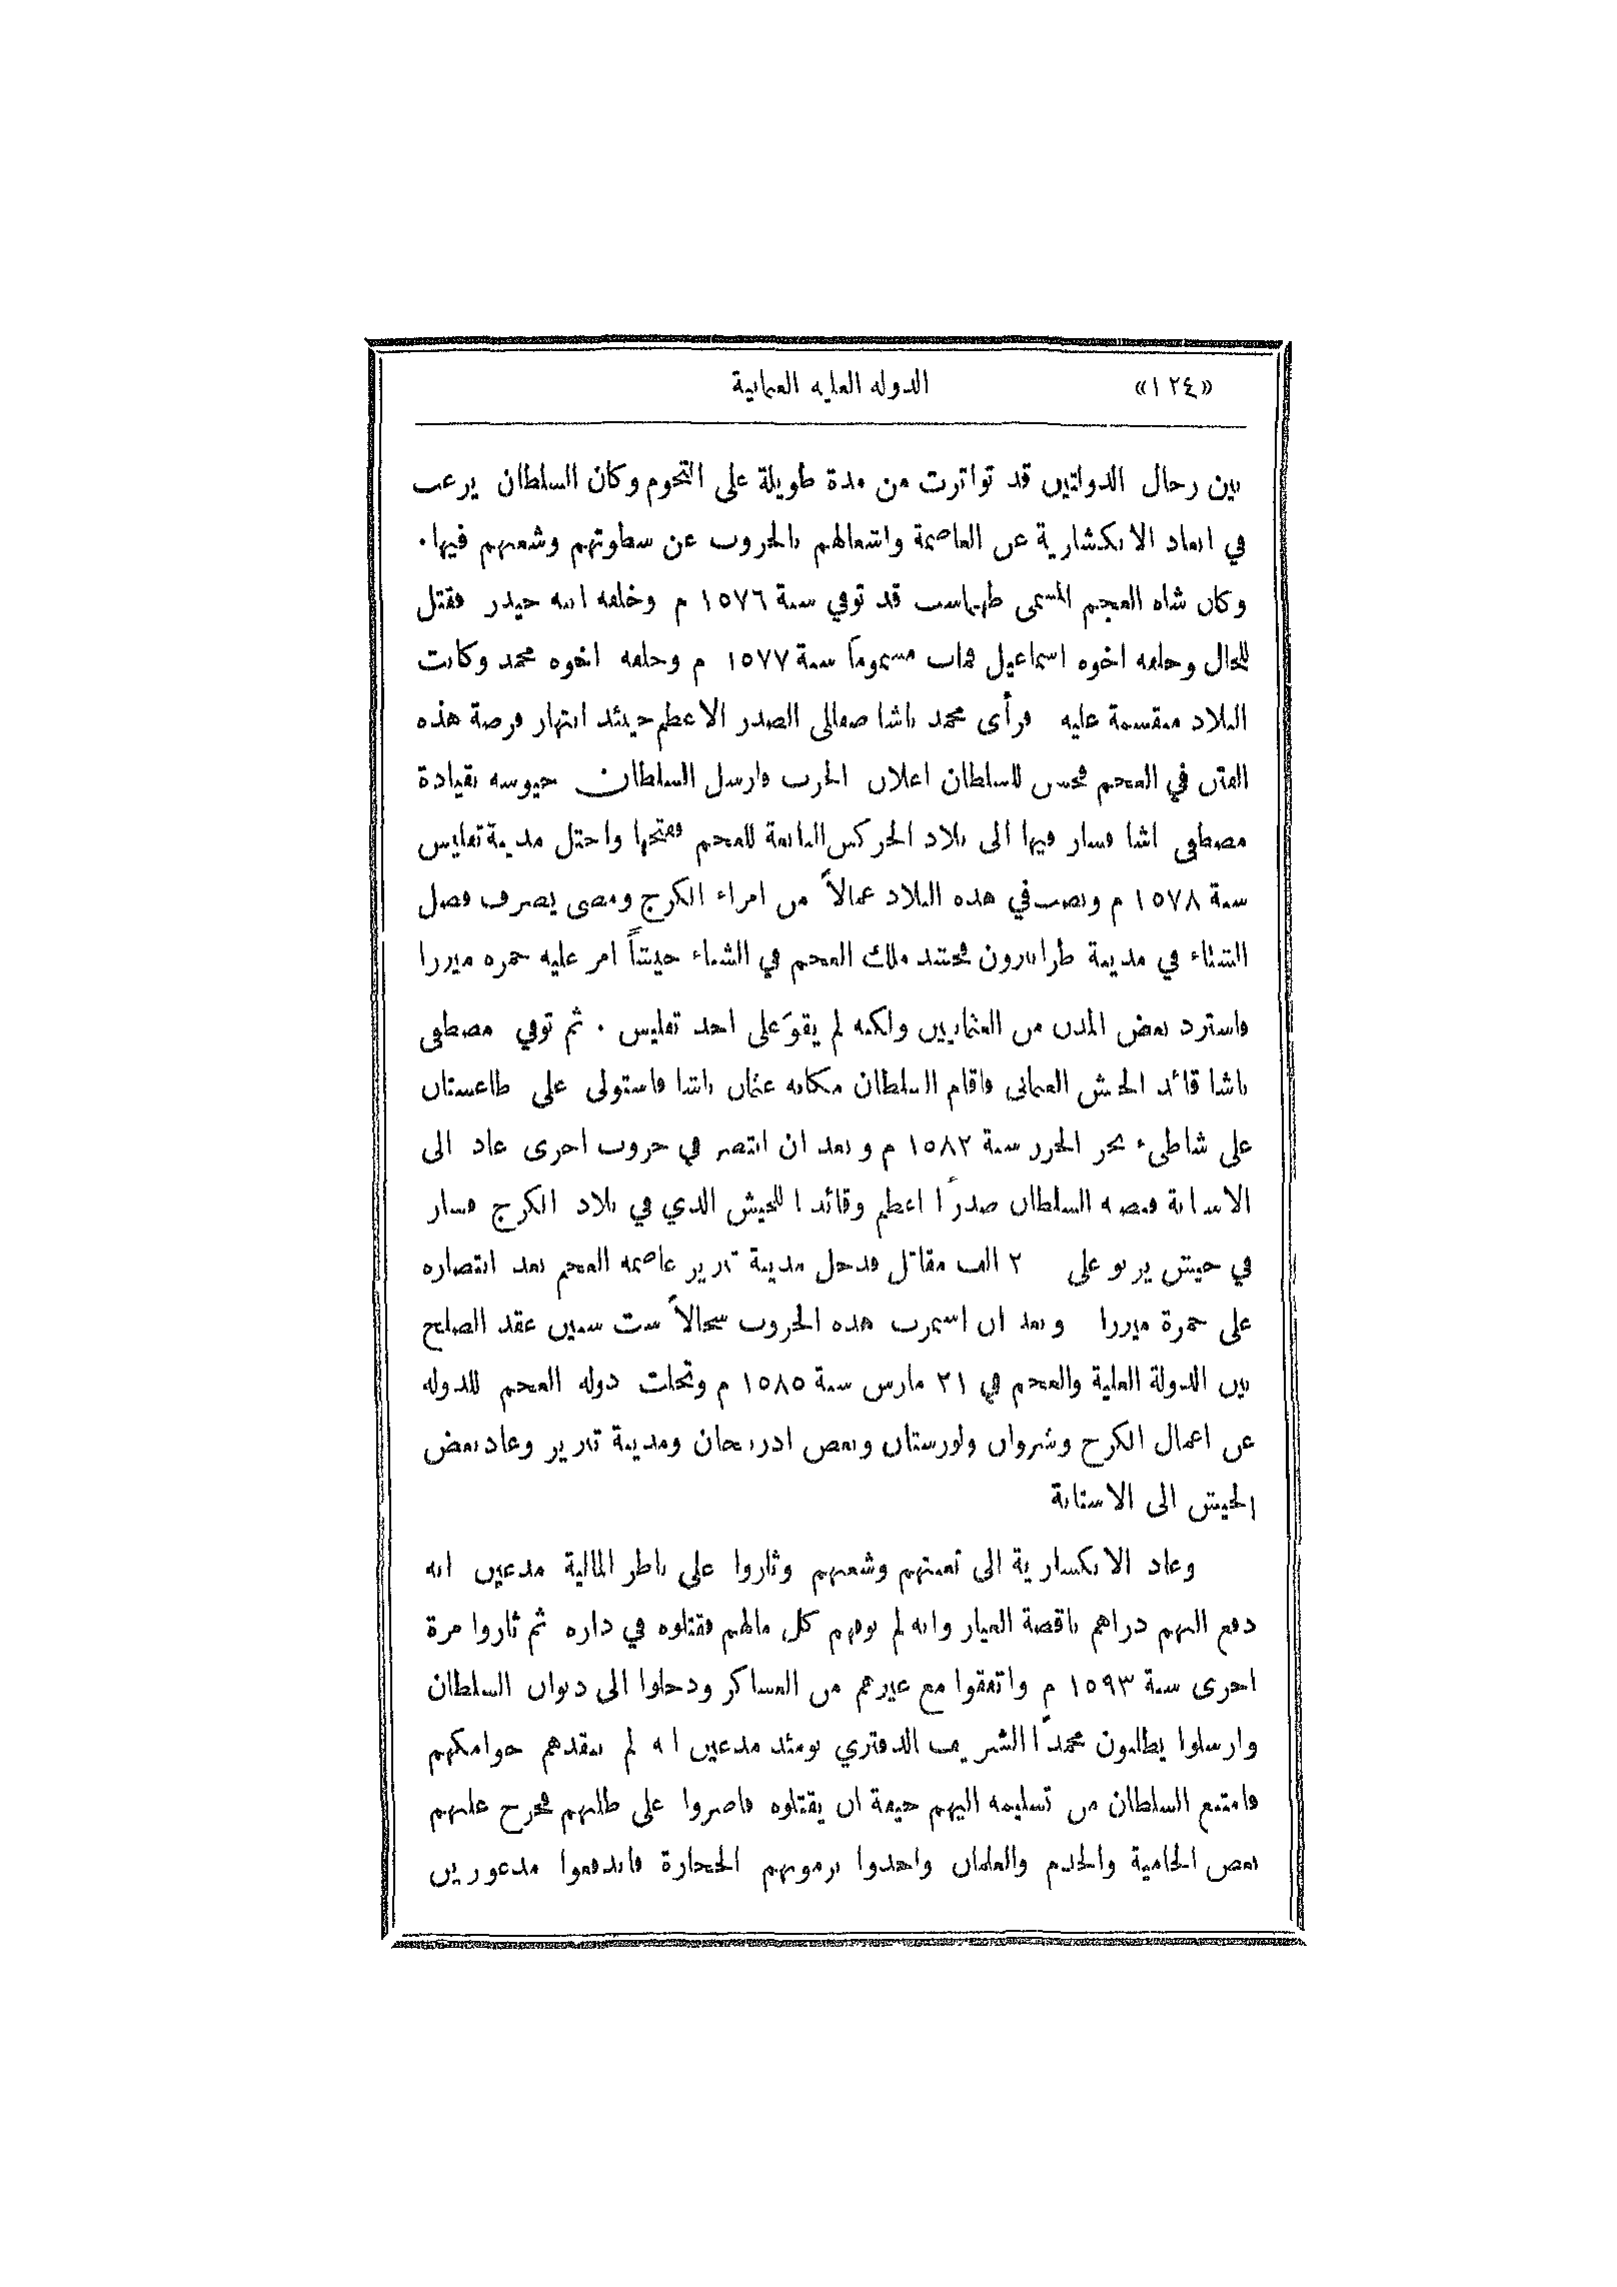 «١٢٤» الدولة العلية العثمانية
بين رجال الدولتين قد تواترت من مدة طويلة على التخوم وكان السلطان يرغب
في ابعاد الانكشارية عن العاصمة واشتغالهم بالحروب عن سطوتهم وشغبهم فيها.
وكان شاه العجم المسمى طهماسب قد توفي سنة ١٥٧٦ م وخلفه ابنه حيدر فقتل
للحال وخلفه اخوه اسماعيل فمات مسموماً سنة ١٥٧٧ م وخلفه اخوه محمد وكانت
البلاد منقسمة عليه فرأى محمد باشا صقالي الصدر الاعظم حينئذ انتهاز فرصة هذه
الفتن في العجم فحسن للسلطان اعلان الحرب فارسل السلطان جيوشه بقيادة
مصطفى باشا فسار فيها الى بلاد الجركس التابعة للعجم ففتحها واحتل مدينة تفليس
سنة ١٥٧٨ م ونصب في هذه البلاد عمالاً من امراء الكرج ومضى يصرف فصل
الشتاء في مدينة طرابزون فحشد ملك العجم في الشتاء جيشاً امر عليه حمزه ميرزا
فاسترد بعض المدن من العثمانيين ولكنه لم يقوَ على اخذ تفليس . ثم توفي مصطفى
باشا قائد الجيش العثماني فاقام السلطان مكانه عثمان باشا فاستولى على طاغستان
على شاطىء بحر الخزر سنة ١٥٨٢ م وبعد ان انتصر في حروب اخرى عاد الى
الاستانة فنصبه السلطان صدرًا اعظم وقائدا للجيش الذي في بلاد الكرج فسار
في جيش يربو على ٢ الف مقاتل فدخل مدينة تبريز عاصمة العجم بعد انتصاره
على حمزة ميرزا وبعد ان استمرت هذه الحروب سجالاً ست سنين عقد الصلح
بين الدولة العلية والعجم في ٢١ مارس سنة ١٥٨٥ م وتخلت دولة العجم للدولة
عن اعمال الكرج وشروان ولورستان وبعض اذربيجان ومدينة تبريز وعاد بعض
الجيش الى الاستانة
وعاد الانكشارية الى تعنتهم وشغبهم وثاروا على ناظر المالية مدعين انه
دفع اليهم دراهم ناقصة العيار وانه لم يوفهم كل مالهم فقتلوه في داره ثم ثاروا مرة
اخرى سنة ١٥٩٣ م واتفقوا مع غيرهم من العساكر ودخلوا الى ديوان السلطان
وارسلوا يطلبون محمدًا الشريف الدفتري يومئذ مدعين انه لم ينقدهم جوامكهم
فامتنع السلطان من تسليمه اليهم خيفة ان يقتلوه فاصروا على طلبهم فخرج عليهم
بعض الحامية والخدم والغلمان واخذوا يرمونهم الحجارة فاندفعوا مذعورين